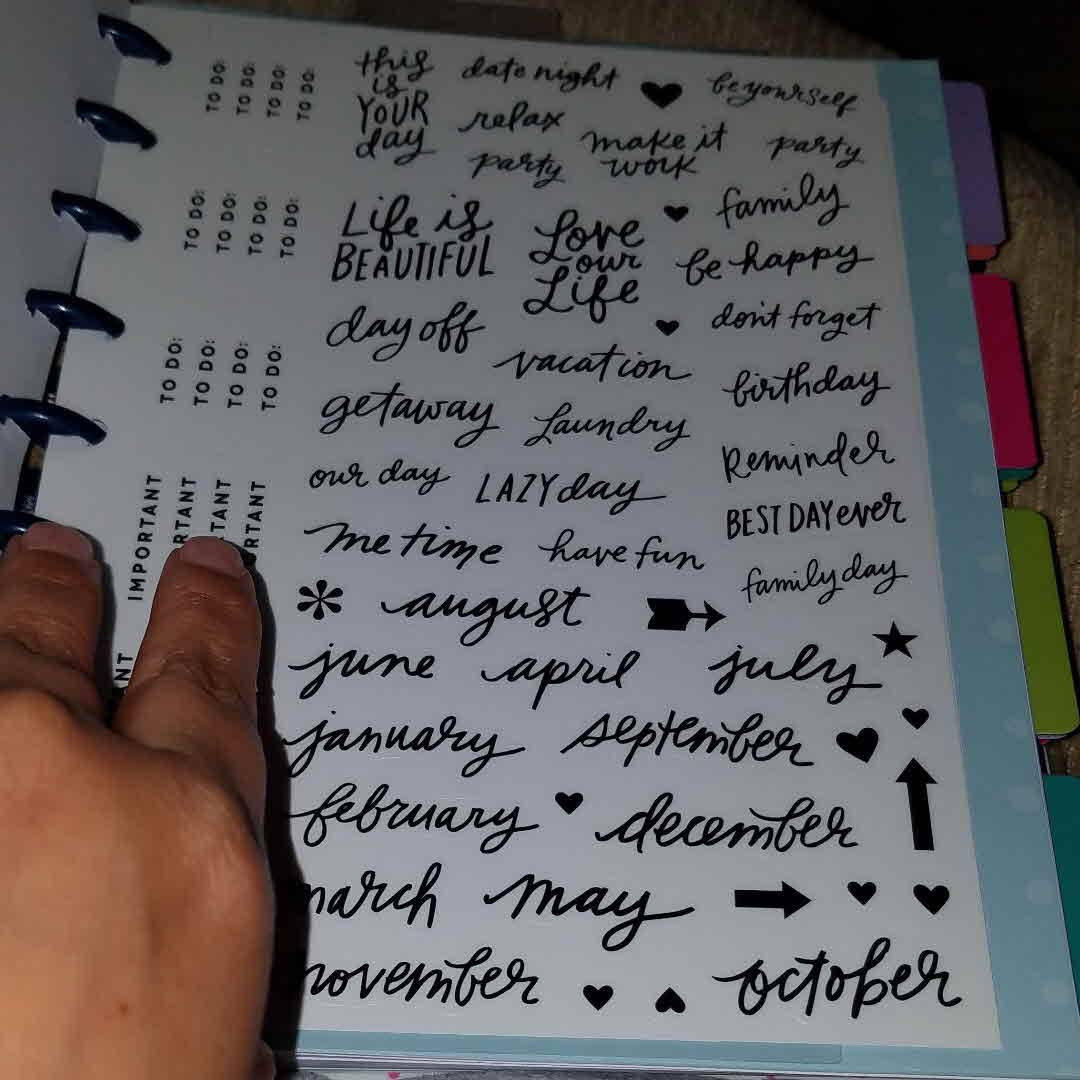 TO DO: TO DO: TO DO: TO DO:
TO DO: TO DO: TO DO: TO DO:
TO DO: TO DO: TO DO: TO DO:
IMPORTANT
this
is
YOUR
day
date night
be yourself
relax
make it
work
party
party
Life is
BEAUTIFUL
Love
our
Life
family
be happy
day off
don't forget
vacation
birthday
getaway
Laundry
Reminder
our day
LAZY day
BEST DAY ever
me time
have fun
family day
august
june april july
january september
february december
march may
november october